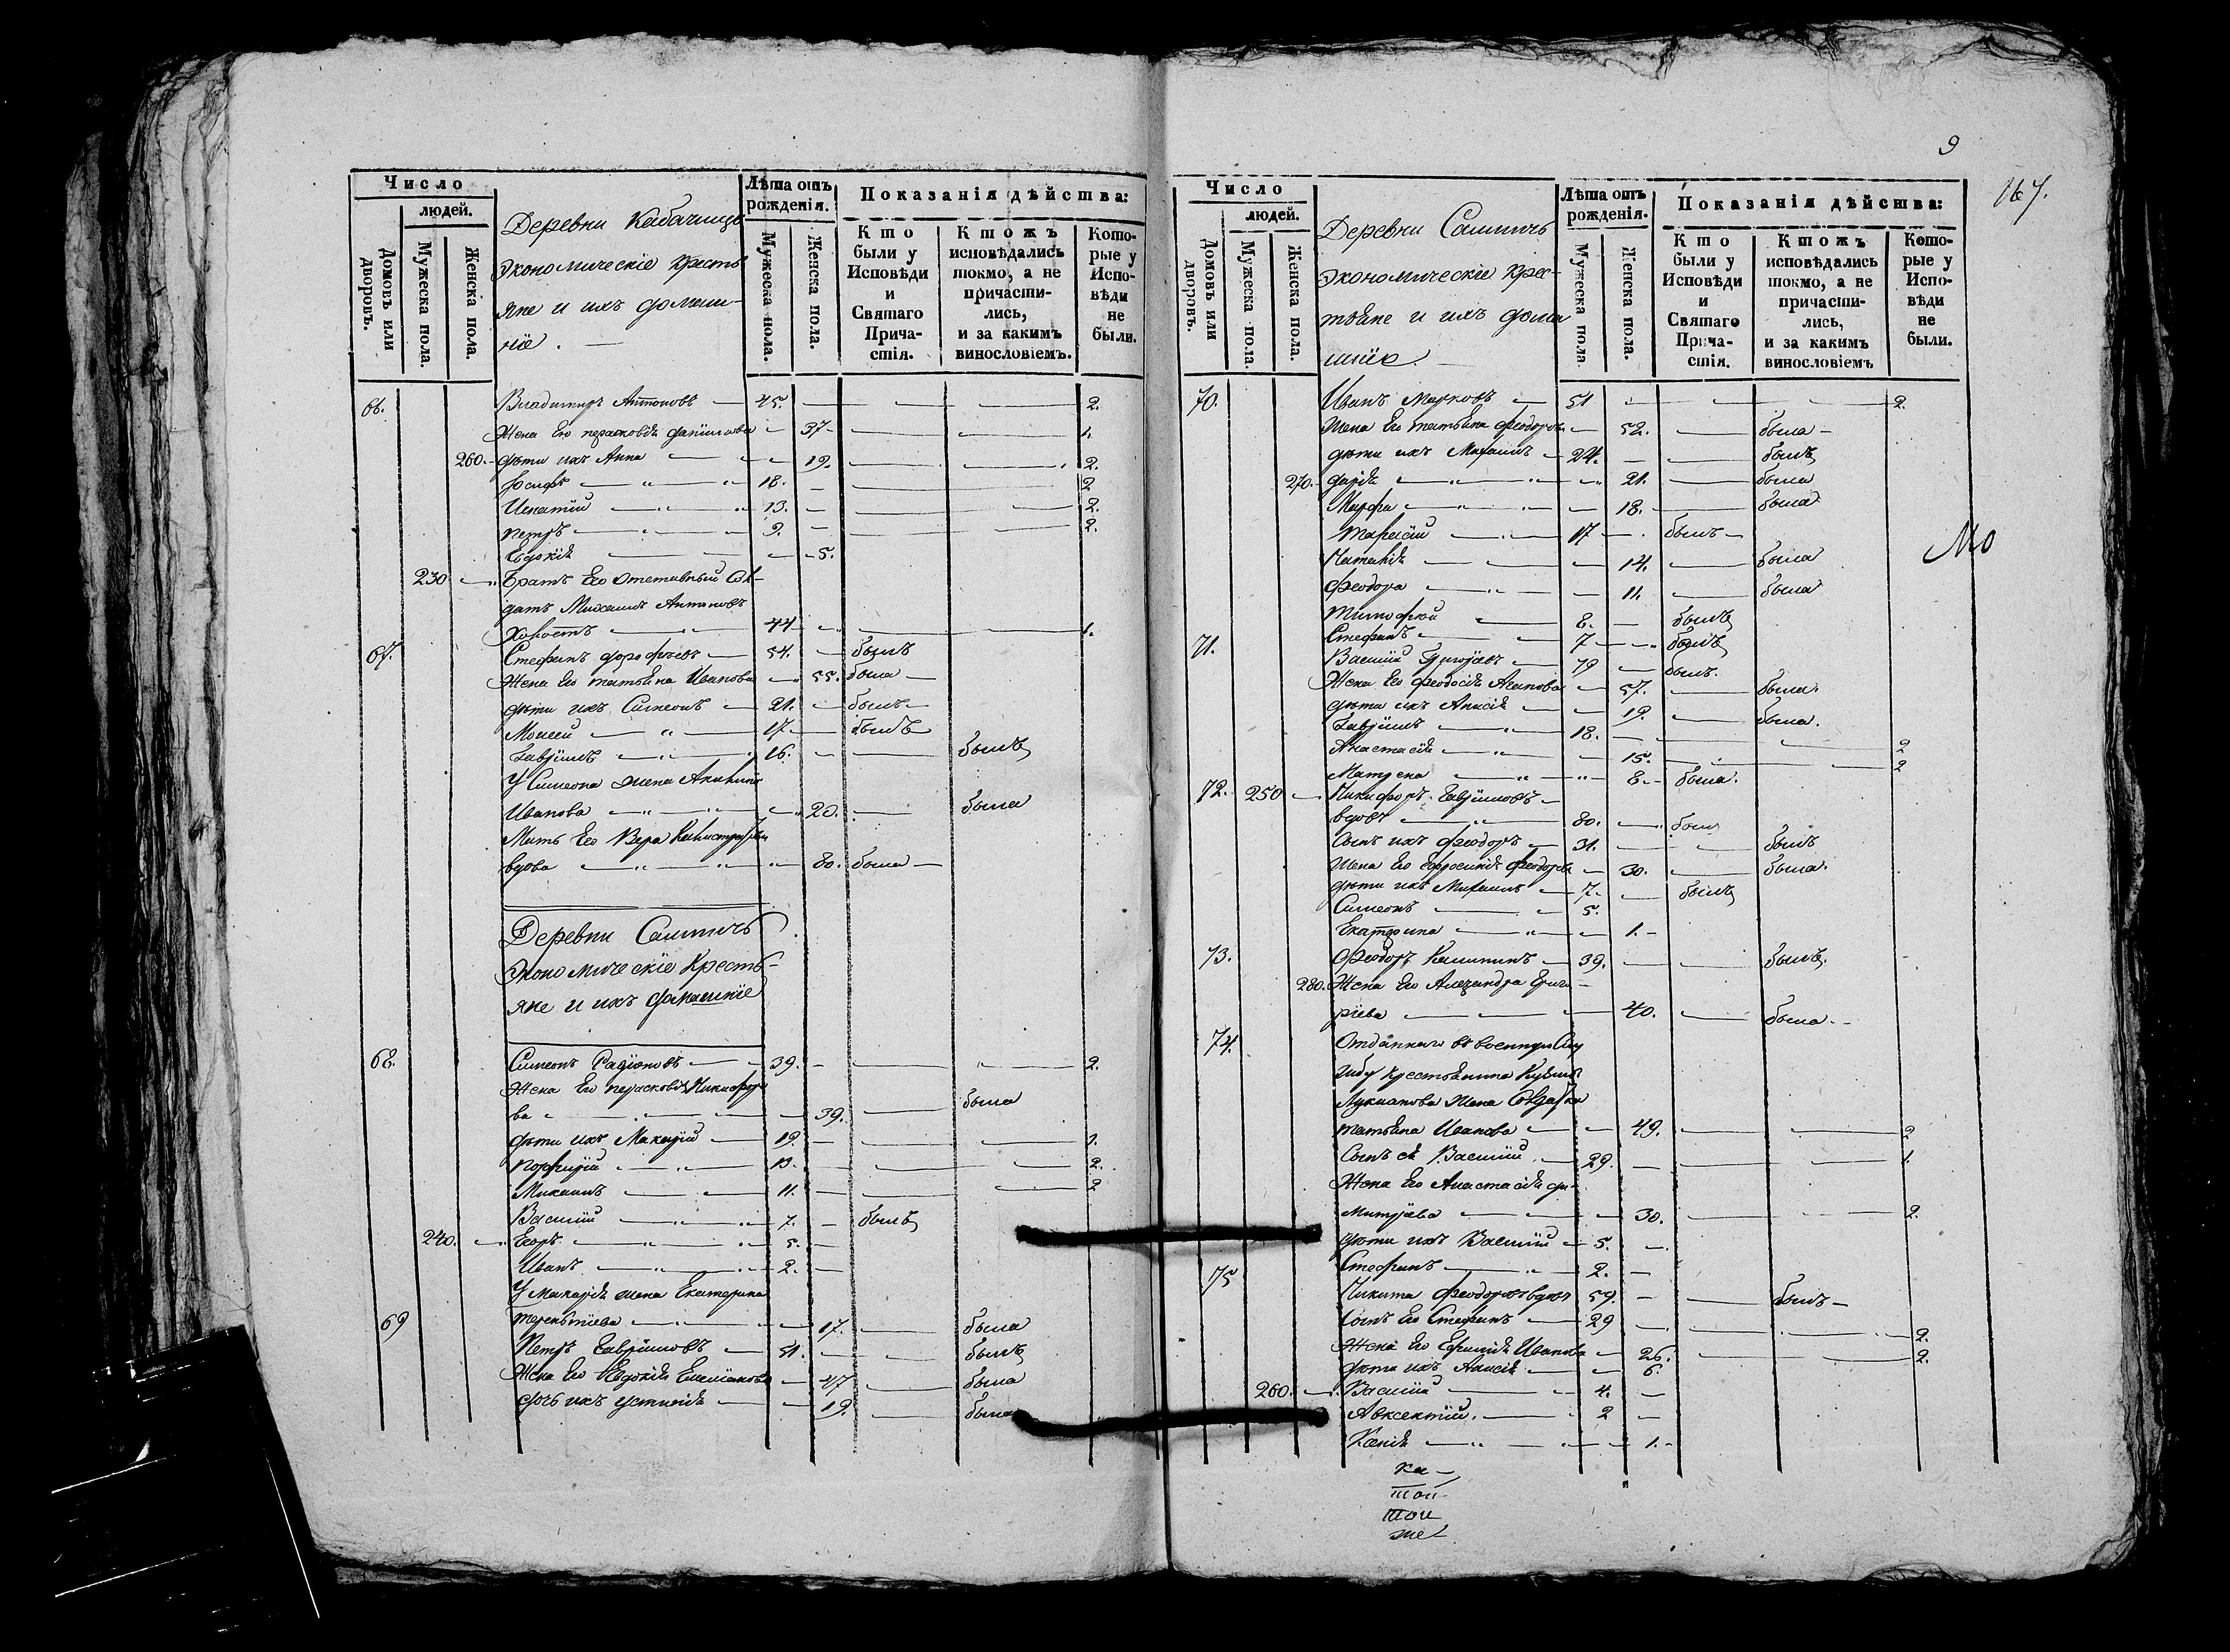 Число
людей.
Домовъ или дворовъ.
Мужеска пола.
Женска пола.
Деревни Кабачищъ
Экономическіе Кресть
яне и ихъ домаш-
ніе.
Лѣта отъ рожденія.
Мужеска пола.
Женска пола.
Показанія дѣйства:
Кто были у Исповѣди и Святаго Причастія.
Ктожъ исповѣдались токмо, а не причастились, и за какимъ винословіемъ.
Которые у Исповѣди не были.
66. Владимиръ Антоновъ 45. 2.
Жена Его параковія 37 1.
260. дѣти ихъ Анна 19. 2.
Іосифъ 18. 2
Игнатій 13. 2.
петръ 9. 2.
Евдокія 5.
230 Братъ Его отставный Сол-
датъ Михаилъ Антоновъ
Холостъ 44 1.
67. Стефанъ дорофѣевъ 54. былъ
Жена Его татьяна Иванова 55. была
дѣти ихъ Симеонъ 21. былъ
Моисей 17. былъ
Гавріилъ 16. былъ
У Симеона жена Акилина
Иванова 20. была
Мать Его Вера
вдова 80. была
Деревни Салтичъ
Экономическіе Кресть-
яне и ихъ домашніе
68. Симеонъ Радіоновъ 39. 2.
Жена Его парасковія Никифоро
ва 39. была
дѣти ихъ Макарій 19. 1.
порфирій 13. 2.
Михаилъ 11. 2
Василій 7. былъ
240. Егоръ 5.
Иванъ 2.
У Макарія жена Екатерина
терентіева 17. была
69 Петръ Гавріиловъ 51. былъ
Жена Его Евдокія Емеліанова 47 была
дочь ихъ устинія 19. была
9
167.
Число
людей.
Домовъ или дворовъ.
Мужеска пола
Женска пола.
Деревни Салтичъ
Экономическіе Крес-
тьяне и ихъ дома
шніе.
Лѣта отъ рожденія.
Мужеска пола
Женска пола.
Показанія дѣйства:
Кто были у Исповѣди и Святаго Причастія.
Ктожъ исповѣдались токмо, а не причастились, и за какимъ винословіемъ
Которые у Исповѣди не были.
70. Иванъ Марковъ 51 2.
Жена Его татьяна Феодоро 52. была
дѣти ихъ Михаилъ 24. былъ
270. дарія 21. была
Марфа 18. была
Тарасій 17 былъ
Наталія 14. была
Феодора 11. была
Тимофей 8. былъ
Стефанъ 7 былъ
71. Василій Григорьевъ 79 былъ.
Жена Его Феодосія 57. была.
дѣти ихъ Анисія 19. была.
Гавріилъ 18. 2
Анастасія 15. 2
Матрена 8. была.
72. 250 Никифоръ Гавріиловъ
вдовъ 80. былъ
Сынъ ихъ Феодоръ 31. былъ
Жена Его Ефросинія Феодоро 30. была.
дѣти ихъ Михаилъ 7. былъ
Симеонъ 5.
Екатерина 1.
73. Феодоръ Калининъ 39. былъ.
280. Жена Его Александра Григо
ріева 40. была.
74. Отданнаго въ военную Слу
жбу крестьянина
Лукианова Жена Солдатка
татьяна Иванова 49. 2
Сынъ ея Василій 29. 1.
Жена Его Анастасія ди-
митріева 30. 2.
дѣти ихъ Василій 5.
Стефанъ 2.
75 Никита Феодоровъ вдовъ 59. былъ
Сынъ Его Стефанъ 29 2.
Жена Его Ефимія Иванова 26. 2.
дѣти ихъ Анисія 6.
260. Василій 4.
Авксентій. 2
Ксенія 1.
Мо
ка-
той
той
же